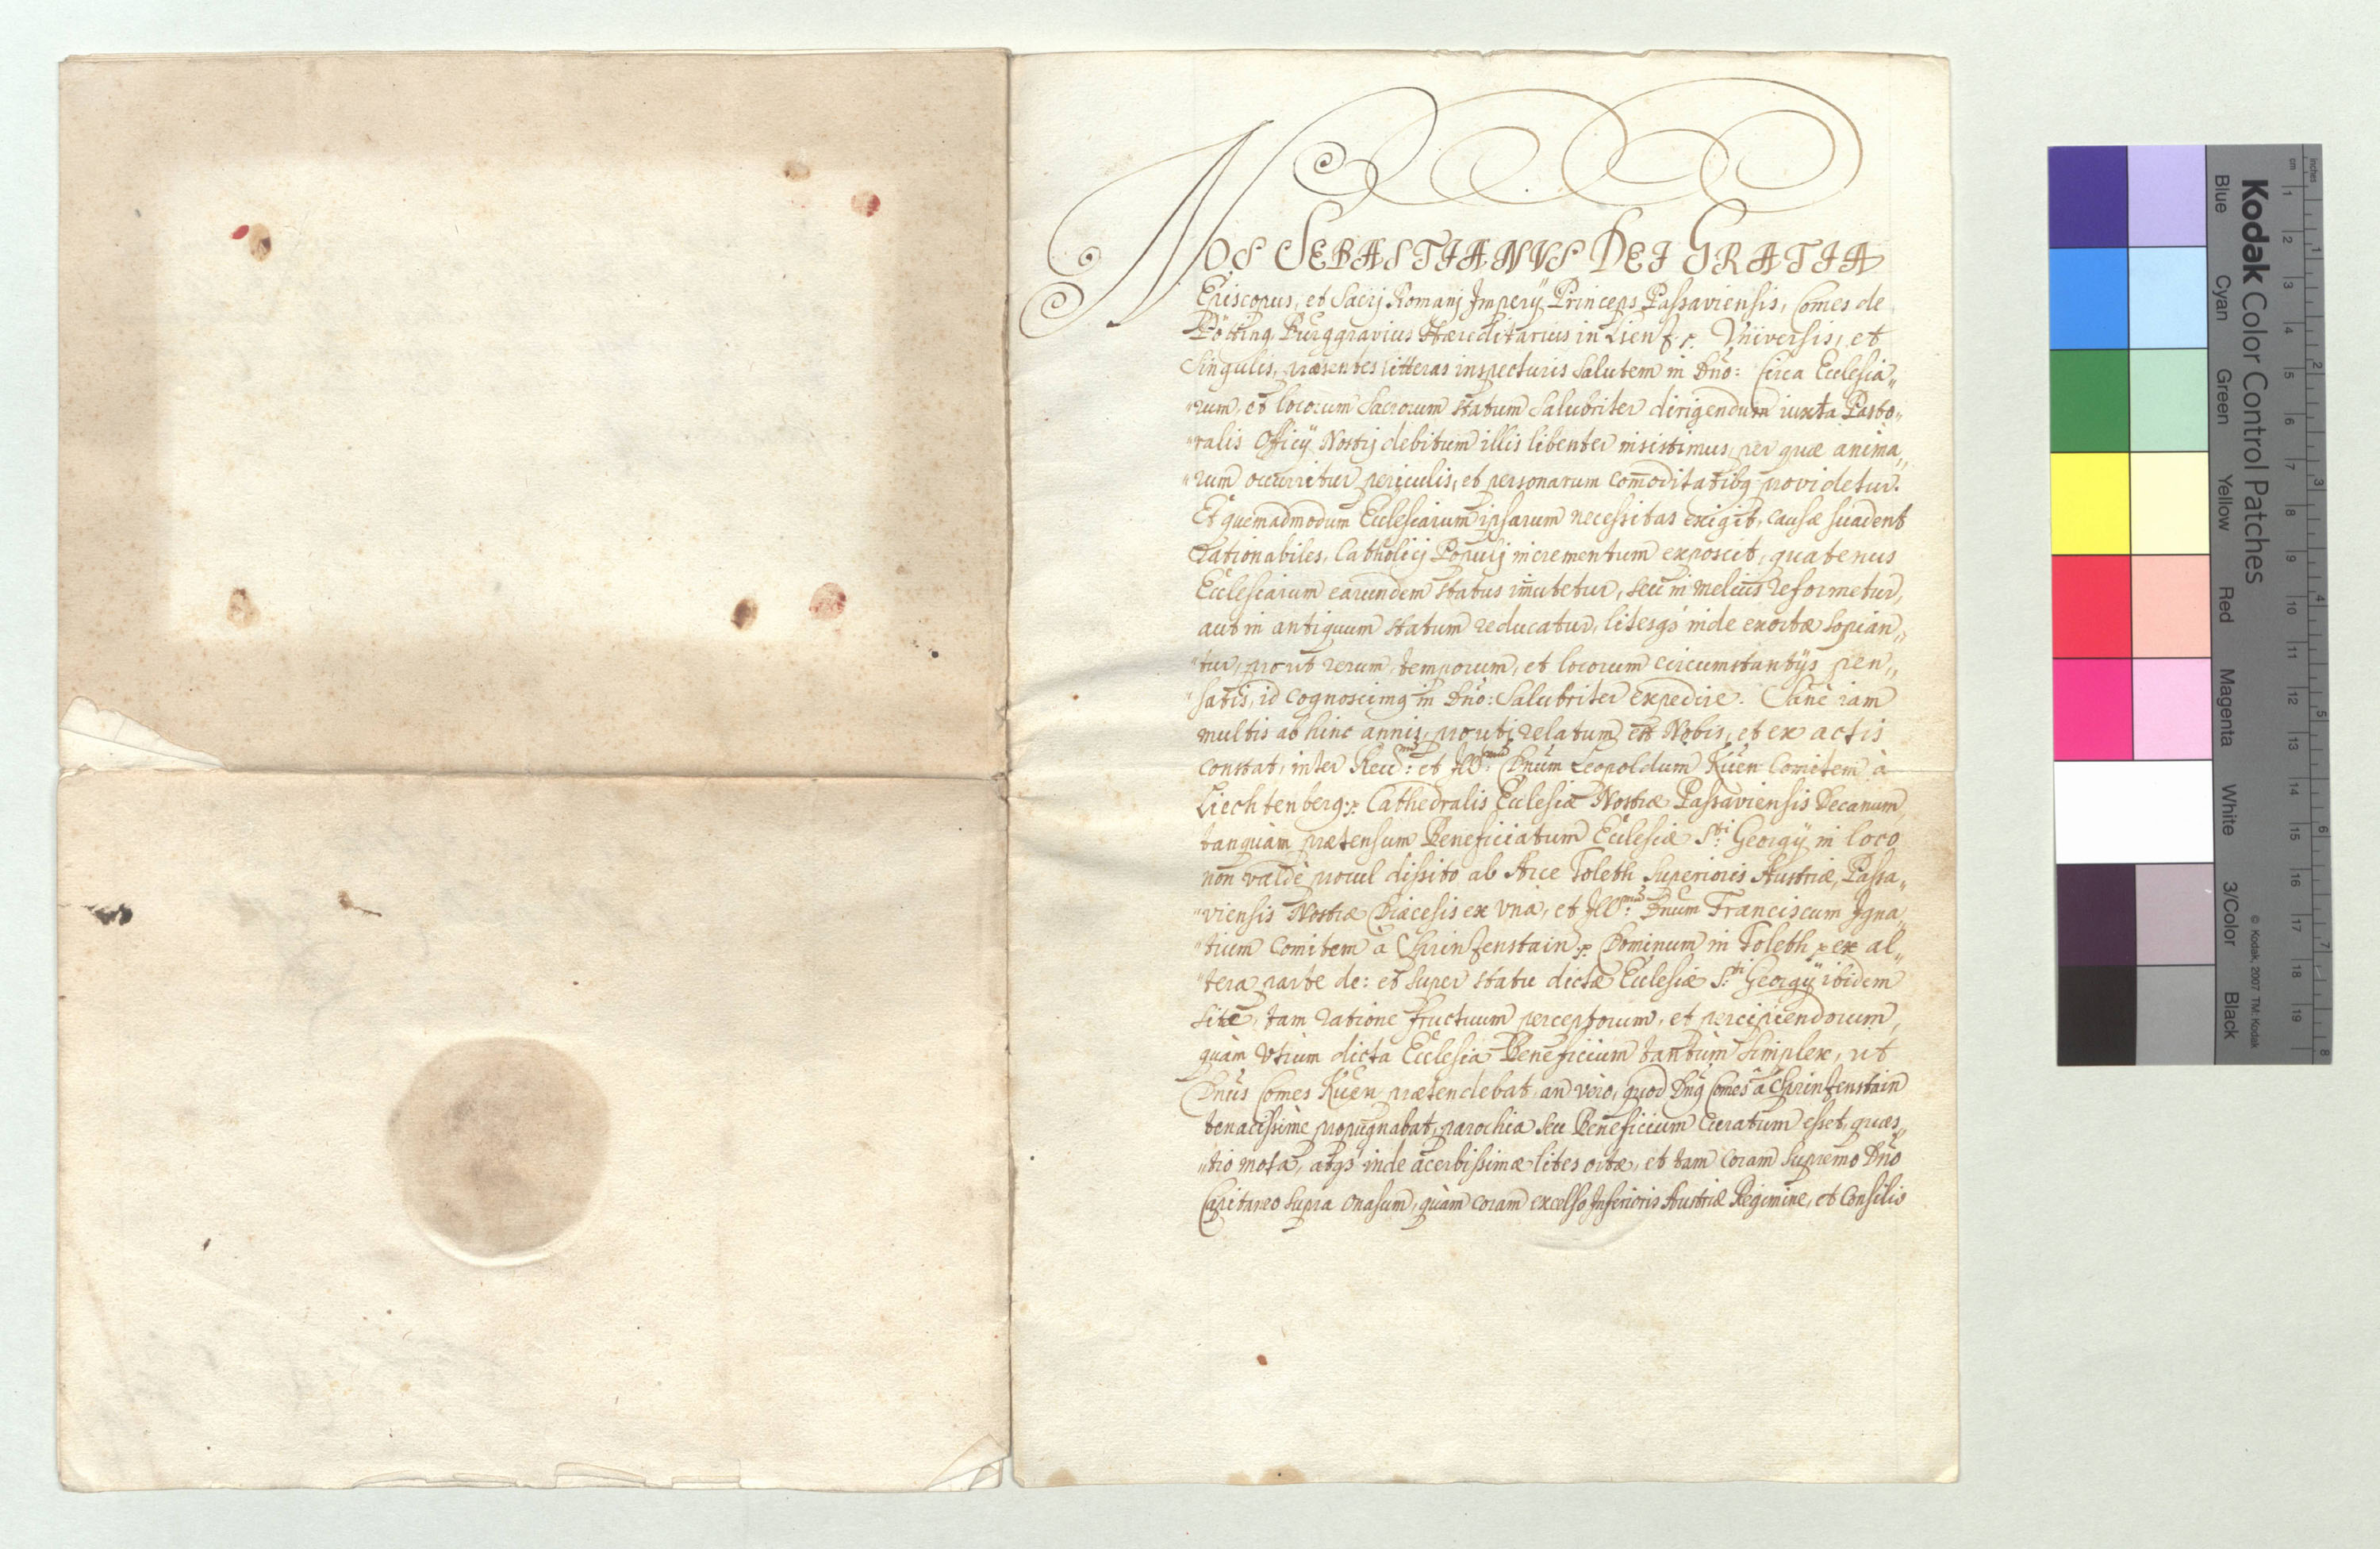 NOS SEBASTIANVS DEI GRATIA
Episcopus, et Sacrj Romanj Imperÿ Princeps Passaviensis, Comes de
Pötting, Burggravius Hæreditarius in Lienz p. Vniversis, et
Singulis, præsentes litteras inspecturis Salutem in Dño: Circa Ecclesia„
„rum, et locorum Sacrorum statum Salubriter dirigendum iuxta Pasto„
„ralis Officÿ Nostrj debitum illis libenter insistimus, per quæ anima„
„rum occurritur periculis, et personarum com̃oditatibq providetur.
Et quemadmodum Ecclesiarum ipsarum necessitas exigit, causæ suadent
Rationabiles, Catholicj Populj incrementum exposcit, quatenus
Ecclesiarum earundem status im̃utetur, seu in melius reformetur,
aut in antiquum statum reducatur, litesq3 inde exortæ sopian„
„tur, prout rerum, temporum, et locorum circumstantÿs pen„
„satis, id cognoscimq in Dño: Salubriter expedire. Sanè iam
multis ab hinc annis, prouti relatum est Nobis, et ex actis
constat, inter Reu:mũ et Ill:mũ Dñum Leopoldum Küen Comitem à
Liechtenberg p. Cathedralis Ecclesiæ Nostræ Passaviensis Decanum,
tanquàm prætensum Beneficiatum Ecclesiæ S:ti Georgÿ in loco
non valdè procul dissito ab Arce Toleth Superioris Austriæ, Passa„
„viensis Nostræ Diæcesis ex vna, et Ill:mũ Dñum Franciscum Igna„
„tium Comitem à Sprinzenstain p. Dominum in Toleth p ex al„
„tera parte de: et super statu dictæ Ecclesiæ S:ti Georgÿ ibidem
sitæ, tam ratione fructuum perceptorum, et percipiendorum,
quàm vtrùm dicta Ecclesia Beneficium tantùm simplex, ut
Dñus Comes Küen prætendebat, an verò, quod Dñq Comes à Sprinzenstain
tenacissimè propugnabat, parochia seu Beneficium Curatum esset, quæs„
„tio mota, atq3 inde acerbissimæ lites ortæ, et tam coram Supremo Dño
Capitaneo supra Onasum, quàm coram excelso Inferioris Austriæ Regimine, et Consilio
Kodak Color Control Patches
Blue Cyan Green Yellow Red Magenta White 3/Color Black
© Kodak, 2007 TM: Kodak
cm 1 2 3 4 5 6 7 8 9 10 11 12 13 14 15 16 17 18 19
inches 1 2 3 4 5 6 7 8